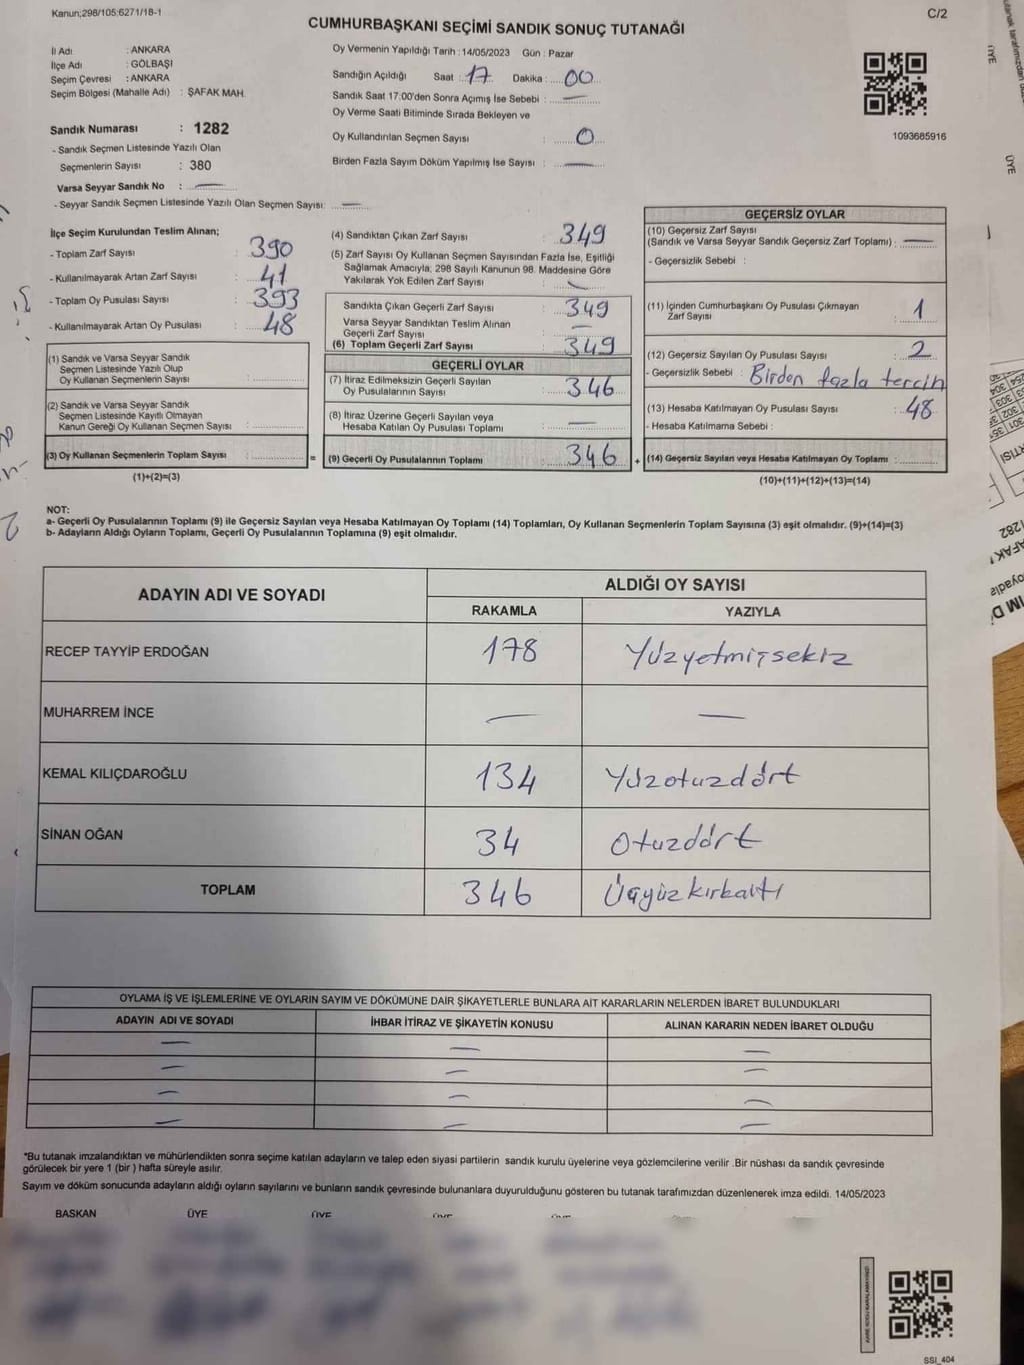 Kanun;298/105;6271/18-1
C/2
CUMHURBAŞKANI SEÇİMİ SANDIK SONUÇ TUTANAĞI
İl Adı : ANKARA
İlçe Adı : GÖLBAŞI
Seçim Çevresi : ANKARA
Seçim Bölgesi (Mahalle Adı) : ŞAFAK MAH.
Sandık Numarası : 1282
- Sandık Seçmen Listesinde Yazılı Olan
Seçmenlerin Sayısı : 380
Varsa Seyyar Sandık No : —
- Seyyar Sandık Seçmen Listesinde Yazılı Olan Seçmen Sayısı: —
Oy Vermenin Yapıldığı Tarih : 14/05/2023 Gün : Pazar
Sandığın Açıldığı Saat : 17 Dakika : 00
Sandık Saat 17:00'den Sonra Açımış İse Sebebi : —
Oy Verme Saati Bitiminde Sırada Bekleyen ve
Oy Kullandırılan Seçmen Sayısı : 0
Birden Fazla Sayım Döküm Yapılmış İse Sayısı : —
1093685916
İlçe Seçim Kurulundan Teslim Alınan;
- Toplam Zarf Sayısı : 390
- Kullanılmayarak Artan Zarf Sayısı : 41
- Toplam Oy Pusulası Sayısı : 393
- Kullanılmayarak Artan Oy Pusulası : 48
(1) Sandık ve Varsa Seyyar Sandık
Seçmen Listesinde Yazılı Olup
Oy Kullanan Seçmenlerin Sayısı :
(2) Sandık ve Varsa Seyyar Sandık
Seçmen Listesinde Kayıtlı Olmayan
Kanun Gereği Oy Kullanan Seçmen Sayısı :
(3) Oy Kullanan Seçmenlerin Toplam Sayısı :
(1)+(2)=(3)
=
(4) Sandıktan Çıkan Zarf Sayısı : 349
(5) Zarf Sayısı Oy Kullanan Seçmen Sayısından Fazla İse, Eşitliği
Sağlamak Amacıyla; 298 Sayılı Kanunun 98. Maddesine Göre
Yakılarak Yok Edilen Zarf Sayısı : —
Sandıkta Çıkan Geçerli Zarf Sayısı : 349
Varsa Seyyar Sandıktan Teslim Alınan
Geçerli Zarf Sayısı : —
(6) Toplam Geçerli Zarf Sayısı : 349
GEÇERLİ OYLAR
(7) İtiraz Edilmeksizin Geçerli Sayılan
Oy Pusulalarının Sayısı : 346
(8) İtiraz Üzerine Geçerli Sayılan veya
Hesaba Katılan Oy Pusulası Toplamı : —
(9) Geçerli Oy Pusulalarının Toplamı : 346
+
GEÇERSİZ OYLAR
(10) Geçersiz Zarf Sayısı
(Sandık ve Varsa Seyyar Sandık Geçersiz Zarf Toplamı) : —
- Geçersizlik Sebebi :
(11) İçinden Cumhurbaşkanı Oy Pusulası Çıkmayan
Zarf Sayısı : 1
(12) Geçersiz Sayılan Oy Pusulası Sayısı : 2
- Geçersizlik Sebebi : Birden fazla tercih
(13) Hesaba Katılmayan Oy Pusulası Sayısı : 48
- Hesaba Katılmama Sebebi :
(14) Geçersiz Sayılan veya Hesaba Katılmayan Oy Toplamı :
(10)+(11)+(12)+(13)=(14)
NOT:
a- Geçerli Oy Pusulalarının Toplamı (9) ile Geçersiz Sayılan veya Hesaba Katılmayan Oy Toplamı (14) Toplamları, Oy Kullanan Seçmenlerin Toplam Sayısına (3) eşit olmalıdır. (9)+(14)=(3)
b- Adayların Aldığı Oyların Toplamı, Geçerli Oy Pusulalarının Toplamına (9) eşit olmalıdır.
ADAYIN ADI VE SOYADI ALDIĞI OY SAYISI
RAKAMLA YAZIYLA
RECEP TAYYİP ERDOĞAN 178 Yüzyetmişsekiz
MUHARREM İNCE — —
KEMAL KILIÇDAROĞLU 134 Yüzotuzdört
SİNAN OĞAN 34 Otuzdört
TOPLAM 346 Üçyüzkırkaltı
OYLAMA İŞ VE İŞLEMLERİNE VE OYLARIN SAYIM VE DÖKÜMÜNE DAİR ŞİKAYETLERLE BUNLARA AİT KARARLARIN NELERDEN İBARET BULUNDUKLARI
ADAYIN ADI VE SOYADI İHBAR İTİRAZ VE ŞİKAYETİN KONUSU ALINAN KARARIN NEDEN İBARET OLDUĞU
— — —
— — —
— — —
— — —
"Bu tutanak imzalandıktan ve mühürlendikten sonra seçime katılan adayların ve talep eden siyasi partilerin sandık kurulu üyelerine veya gözlemcilerine verilir .Bir nüshası da sandık çevresinde
görülecek bir yere 1 (bir ) hafta süreyle asılır.
Sayım ve döküm sonucunda adayların aldığı oyların sayılarını ve bunların sandık çevresinde bulunanlara duyurulduğunu gösteren bu tutanak tarafımızdan düzenlenerek imza edildi. 14/05/2023
BAŞKAN ÜYE ÜYE ÜYE ÜYE
SSI_404